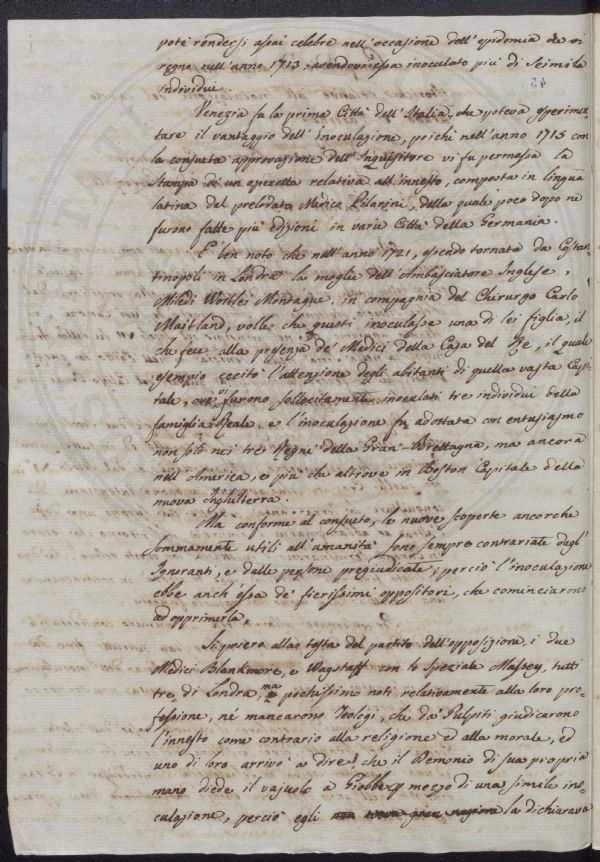 poté rendersi assai celebre nell'occasione dell'epidemia che vi
regnò nell'anno 1713 avendovi essa inoculato più di Seimila
individui.
Venezia fu la prima Città dell'Italia, che poteva sperimen-
tare il vantaggio dell'inoculazione, poichè nell'anno 1715 con
la consueta approvazione dell'Inquisitore vi fu permessa la
Stampa di un operetta relativa all'innesto, composta in lingua
latina del prelodato Medico Pilarini, della quale poco dopo ne
furono fatte più edizioni in varie Città della Germania.
E' ben noto che nell'anno 1721, essendo tornata da Costan-
tinopoli in Londra la moglie dell'Ambasciatore Inglese,
Miledi Wortlei Montague, in compagnia del Chirurgo Carlo
Maitland, volle che questi inoculasse una di lei figlia, il
che fece alla presenza de' Medici della Casa del Re, il quale
esempio eccitò l'attenzione degli abitanti di quella vasta Capi-
tale, ove vi furono sollecitamente inoculati tre individui della
famiglia Reale, e l'inoculazione fu adottata con entusiasmo
non solo nei tre Regni della Gran-Brettagna, ma ancora
nell'America, e più che altrove in Boston Capitale della
nuova Inghilterra.
Ma conforme al consueto, le nuove scoperte ancorche
sommamente utili all'umanità sono sempre contrariate dagl'
Ignoranti, e dalle persone pregiudicate; perciò l'inoculazione
ebbe anch'essa de' fierissimi oppositori, che cominciarono
ad opprimerla.
Si posero alla testa del partito dell'opposizione, i due
Medici Blankmore, e Wagstaff con lo Speziale Massey, tutti
tre di Londra, ma pochissimo noti relativamente alla loro pro-
fessione, né mancarono Teologi, che da' Pulpiti giudicarono
l'innesto come contrario alla religione ed alla morale, ed
uno di loro arrivò a dire, che il Demonio di sua propria
mano diede il vajuolo a Giobbe per mezzo di una simile ino-
culazione, perciò egli non aveva gran ragione la dichiarava